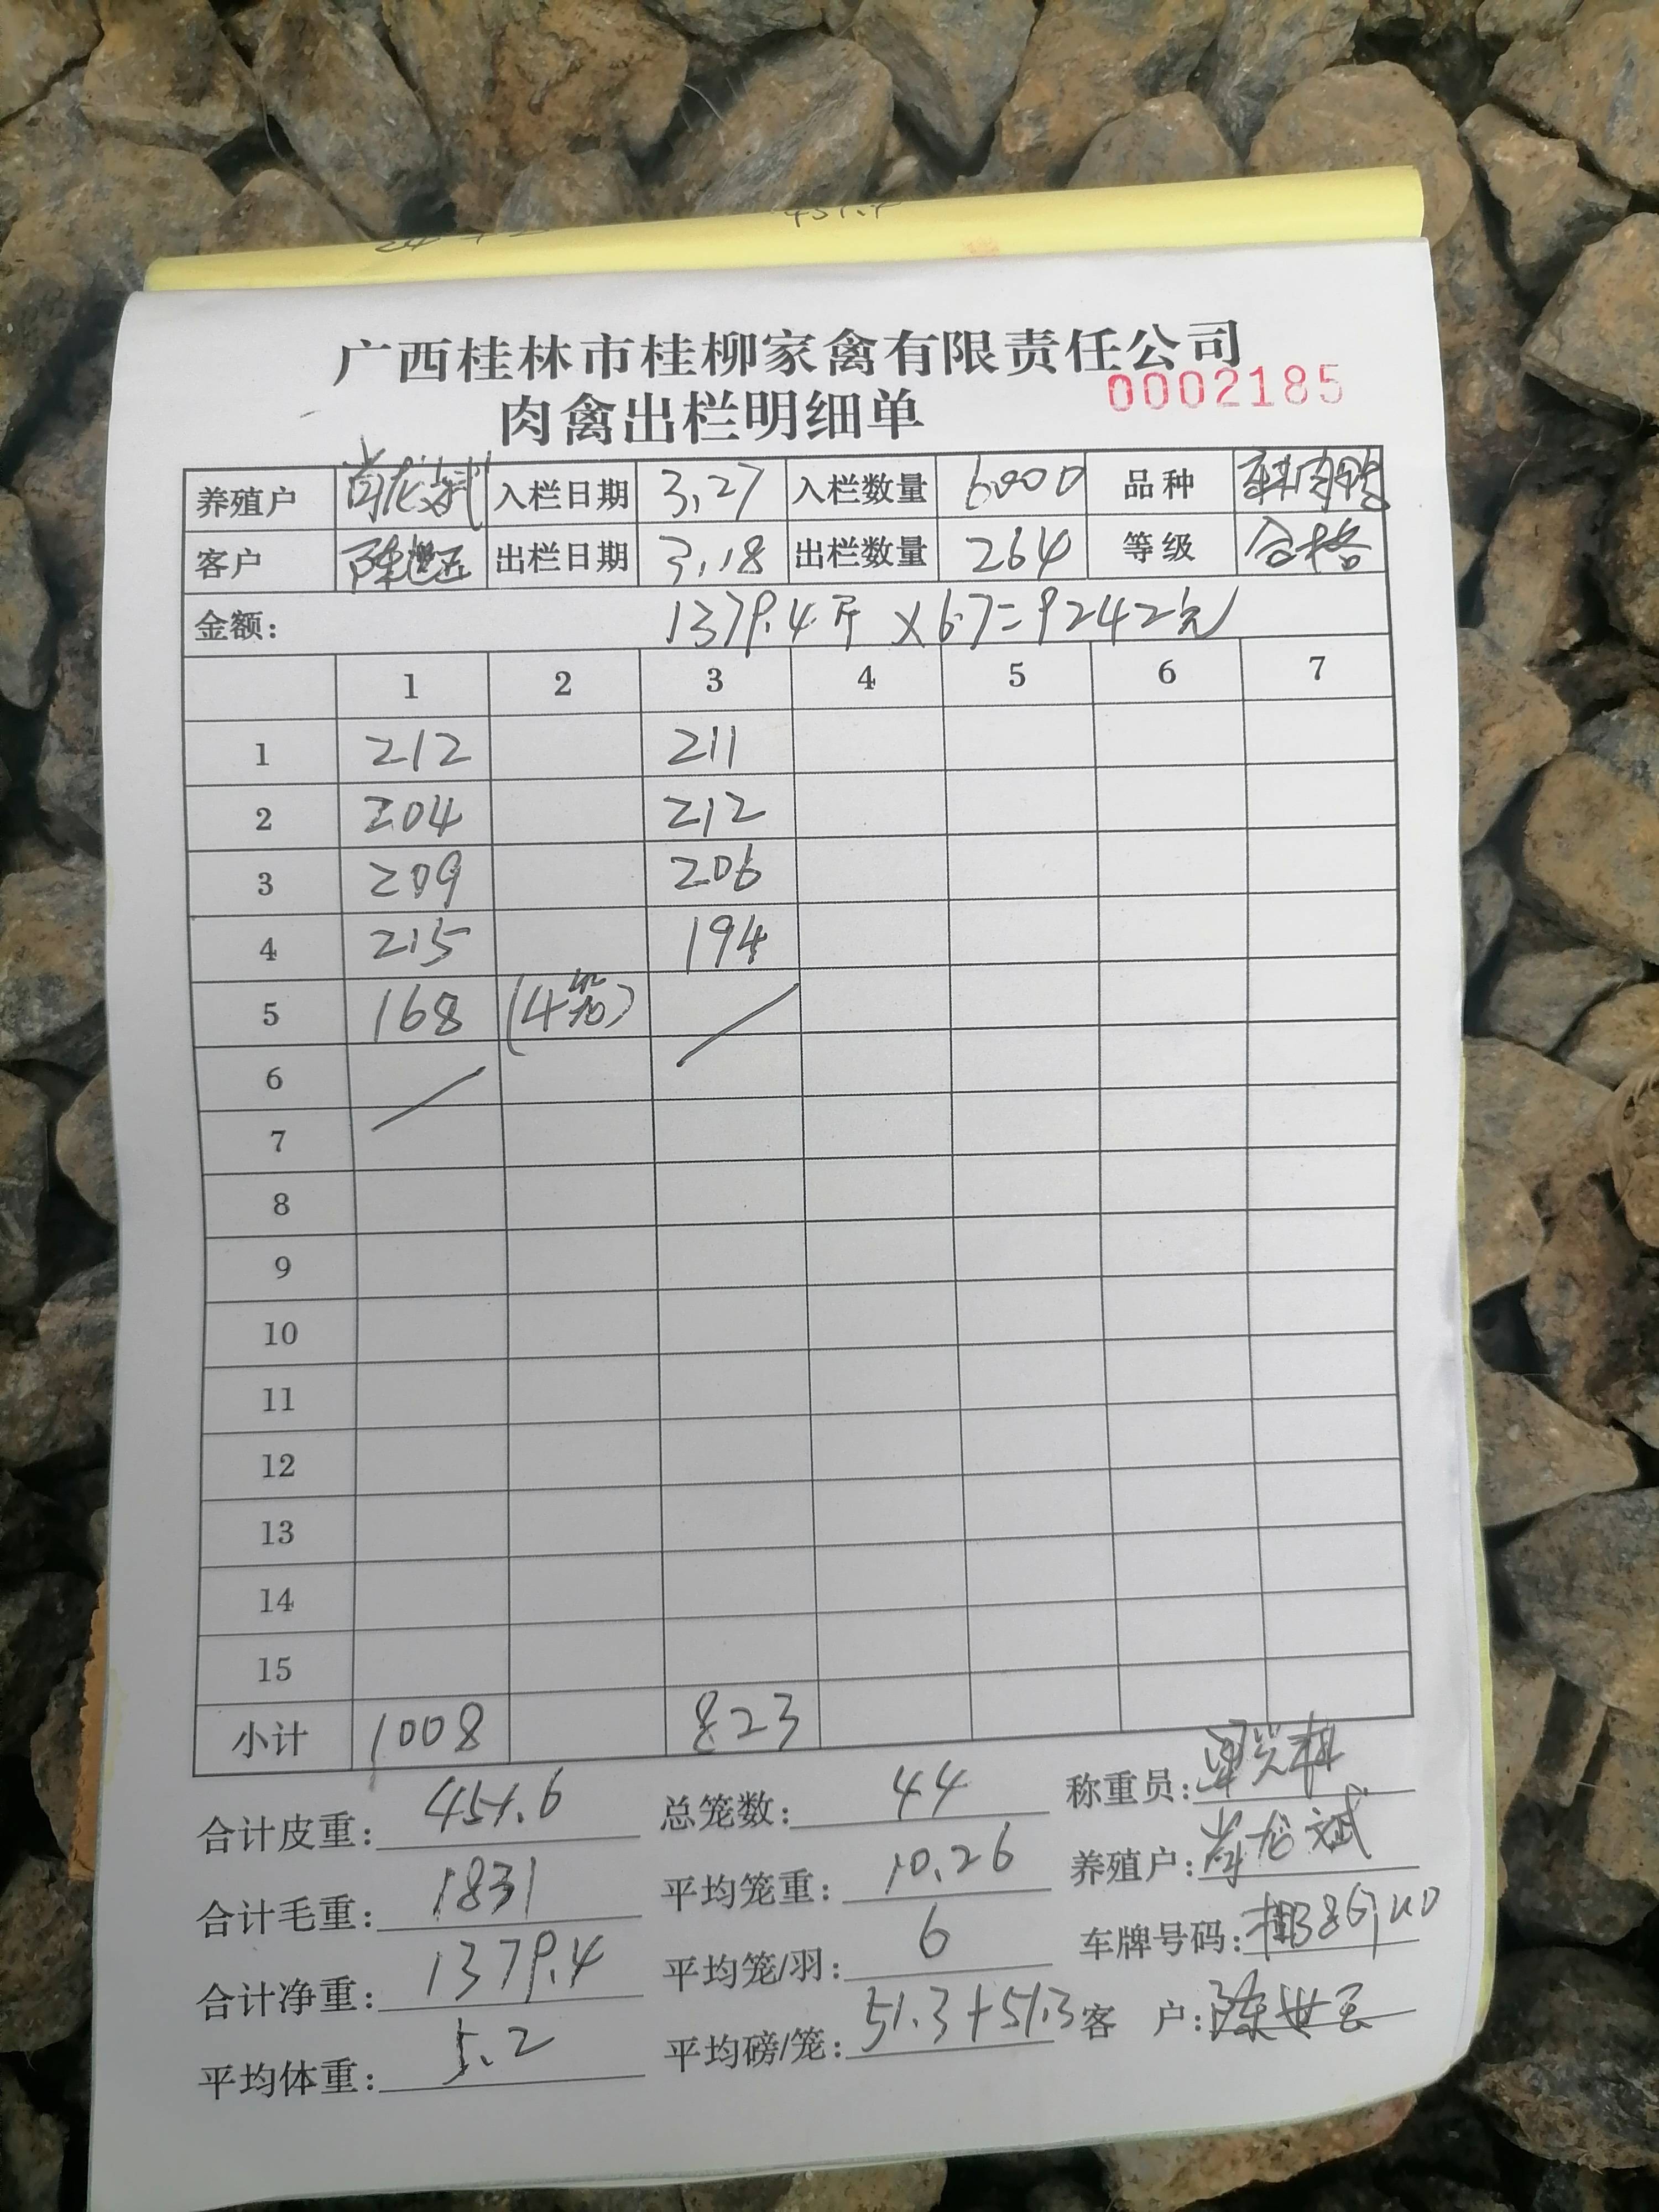 广西桂林市桂柳家禽有限责任公司
0002185
肉禽出栏明细单
养殖户 龙斌 入栏日期 3,27 入栏数量 6000 品种
客户 陈 出栏日期 3,18 出栏数量 264 等级 合格
金额: 1379.4斤 X6.7=9242元
1 2 3 4 5 6 7
1 212 211
2 204 212
3 209 206
4 215 194
5 168 (4笼)
6
7
8
9
10
11
12
13
14
15
小计 1008 823
合计皮重: 451.6 总笼数: 44 称重员:
合计毛重: 1831 平均笼重: 10.26 养殖户: 龙斌
合计净重: 1379.4 平均笼/羽: 6 车牌号码:
平均体重: 5.2 平均磅/笼: 51.3+51.3 客 户: 陈世玉